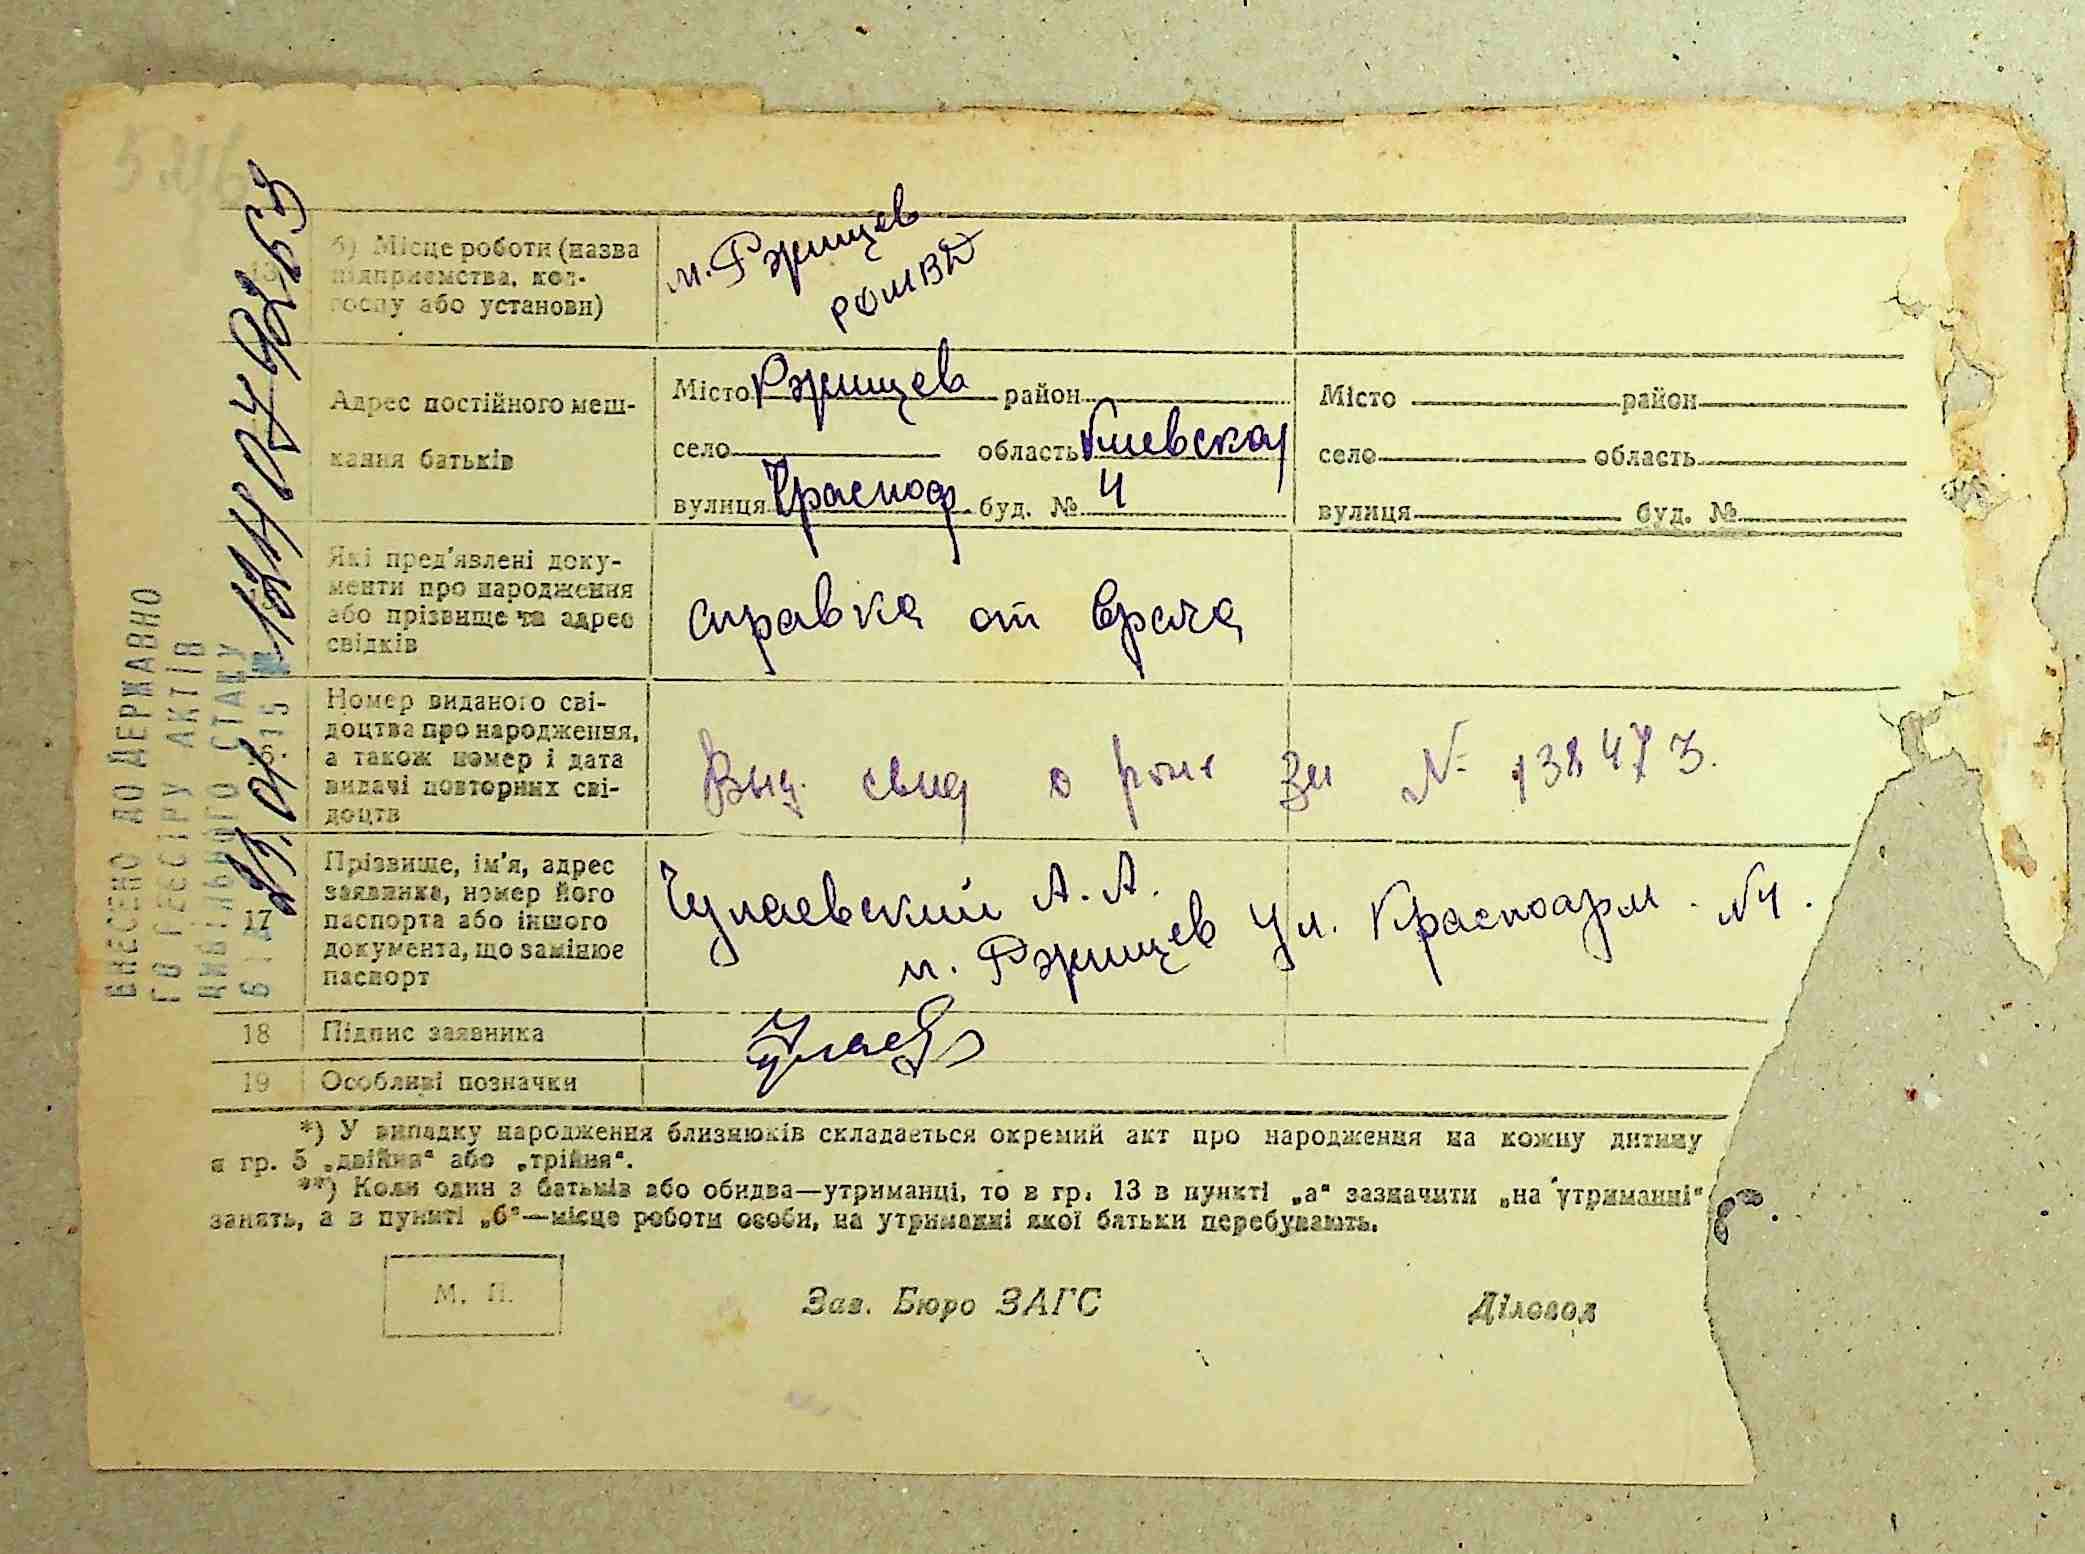 б) Місце роботи (назва
підприємства, кол-
госпу або установи)
м. Ржищев
РОМВД
Адрес постійного меш-
кання батьків
Місто Ржищев район
село область Киевская
вулиця Красноар буд. № 4
Місто район
село область
вулиця буд. №
Які пред'явлені доку-
менти про народження
або прізвище та адрес
свідків
справка от врача
Номер виданого сві-
доцтва про народження,
а також номер і дата
видачі повторних сві-
доцтв
Выд. свид о рож за № 138473.
17
Прізвище, ім'я, адрес
заявника, номер його
паспорта або іншого
документа, що замінює
паспорт
А. А.
м. Ржищев ул. Красноарм. №4.
18 Підпис заявника
19 Особливі позначки
*) У випадку народження близнюків складається окремий акт про народження на кожну дитину
в гр. 5 „двійня“ або „трійня“.
**) Коли один з батьків або обидва—утриманці, то в гр. 13 в пункті „а“ зазначити „на утриманні“
занять, а в пункті „б“—місце роботи особи, на утриманні якої батьки перебувають.
М. П.
Зав. Бюро ЗАГС
Діловод
ВНЕСЕНО ДО ДЕРЖАВНО
ГО РЕЄСТРУ АКТІВ
ЦИВІЛЬНОГО СТАНУ